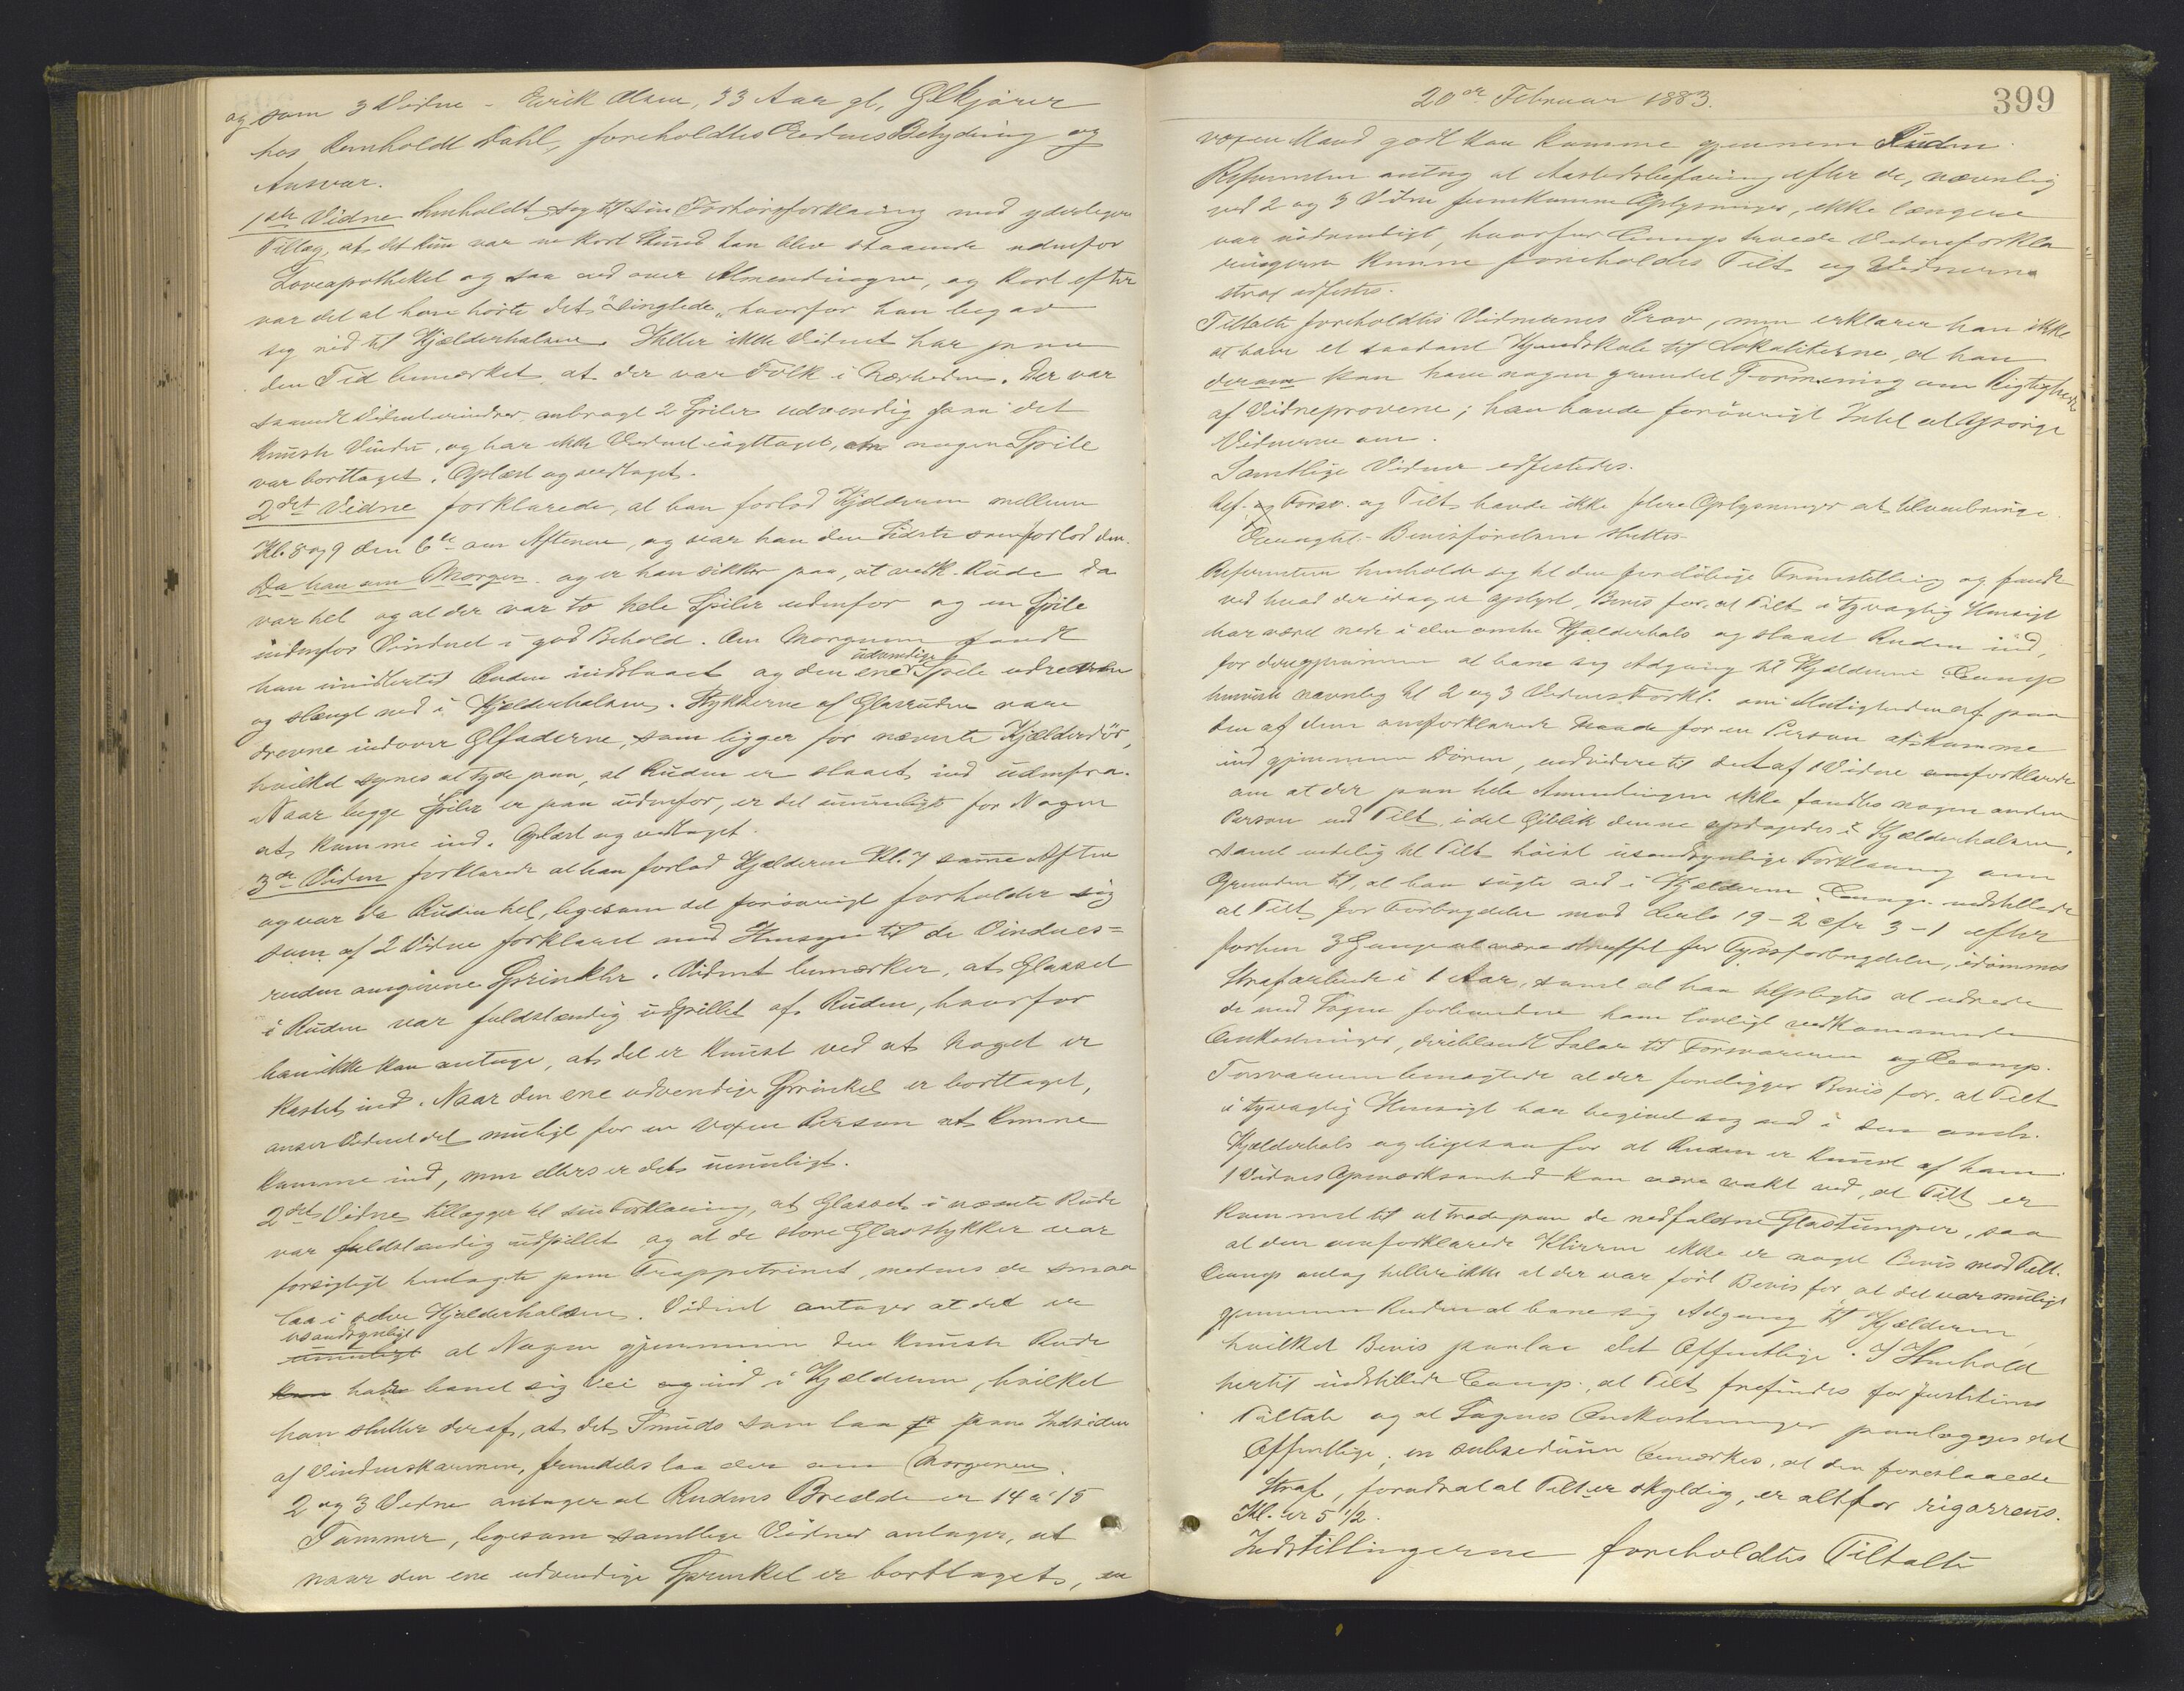 og som 3 Vidne - Eirik Olsen, 33 Aar gl, Ølkjører
hos Reinholdt Dahl, foreholdtes Eedens Betydning og
Ansvar.
1ste Vidne henholdt sig til sin Forhörsforklaring med yderligere
Tillæg, at det kun var en kort Stund han blev staaende udenfor
Löveapotheket og saa ned over Almendingen, og kort efter
var det at han hörte det "singlede", hvorfor han begav
sig ned til Kjælderhalsen. Heller ikke Vidnet har paa
den Tid bemærket, at der var Folk i Nærheden. Der var
saavidt Vidnet erindrer, anbragt 2 Spiler udvendig paa det
knuste Vindu, og har ikke Vidnet iagttaget, om nogen Spile
var borttaget. Oplæst og vedtaget.
2det Vidne forklarede, at han forlod Kjelderen mellem
Kl. 8 og 9 den 6te om Aftenen, og var han den Sidste som forlod den.
Da han om Morgen. og er han sikker paa, at vedk. Rude da
var hel og at der var to hele Spiler udenfor og en Spile
indenfor Vinduet i god Behold. Om Morgenen fandt
han imidlertid Ruden indslaaet og den ene udvendige Spile udreven
og slængt ned i Kjælderhalsen. Stykkerne af Glasruden vare
drevne indover Ølfaderne, som ligger for nævnte Kjælderdör,
hvilket synes at tyde paa, at Ruden er slaaet ind udenfra.
Naar begge Spiler er paa udenfor, er det umuligt for Nogen
at komme ind. Oplæst og vedtaget.
3die Vidne forklarede at han forlod Kjælderen Kl. 7 samme Aften
og var da Ruden hel, ligesom det forövrigt forholder sig
som af 2 Vidne forklaret med Hensyn til de Vindues=
ruden angivne Sprinkler. Vidnet bemærker, at Glasset
i Ruden var fuldstændig udpillet af Ruden, hvorfor
han ikke kan antage, at det er knust ved at noget er
kastet ind. Naar den ene udvendige Sprinkel er borttaget,
anser Vidnet det muligt for en voxen Person at kunne
komme ind, men ellers er det umuligt.
2det Vidne tillægger til sin Forklaring, at Glasset i nævnte Rude
var fuldstændig udpillet og at de store Glasstykker var
forsigtigt henlagte paa Trappetrinet, medens de smaa
laa i selve Kjælderhalsen. Vidnet antager at det er
usandsynligt
umuligt at Nogen gjennem den knuste Rude
kan havde banet sig Vei og ind i Kjælderen, hvilket
han slutter deraf, at det Smuds som laa paa Indsiden
af Vindueskarmen, fremdeles laa der om Morgenen.
2 og 3 Vidne antager at Rudens Bredde er 14 à 15
Tommer, ligesom samtlige Vidner antager, at
naar den ene udvendige Sprinkel er borttaget, en
20de Februar 1883.
399
voxen Mand godt kan komme gjennem Ruden.
Referenten antog at Aastedsbefaring efter de, nævnlig
ved 2 og 3 Vidne fremkomne Oplysninger, ikke længere
var nödvendigt, hvorfor Comp. troede Vidneforkla
ringerne kunne foreholdes Tilt. og Vidnerne
strax edfæstes.
Tiltalte foreholdtes Vidnernes Prov, men erklærer han ikke
at have et saadant Kjendskab til Lokaliterne, at han
derom kan have nogen grundet Formening om Rigtigheden
af Vidneprovene; han havde forövrigt Intet at spörge
Vidnerne om.
Samtlige Vidner edfæstedes.
Ref. og Forsv. og Tilt. havde ikke flere Oplysninger at tilveiebringe.
Bevisförelsen sluttes.
Referenten henholdt sig til den foreløbige Fremstilling og fandt
ved hvad der idag er oplyst, Bevis for, at Tilt. i tyvagtig Hensigt
har været nede i den omhe Kjælderhals og slaaet Ruden ind,
for derigjennem at bane sig Adgang til Kjælderen. Comp
henviste nævnlig til 2 og 3 Vidnes Forkl. om Muligheden af paa
den af dem omforklarede Maade for en Person at komme
ind gjennem Dören, endvidere til det af 1 Vidne omforklarede
om at der paa hele Almendingen ikke fandtes nogen anden
Person end Tilt. i det Öieblik denne opdagedes i Kjælderhalsen,
samt endelig til Tilts höist usandsynlige Forklaring om
Grunden til, at han sögte ned i Kjælderen. Comp. indstillede
at Tilt. for Forbrydelse mod Krls 19-2 cfr 3-1 efter
forhen 3 Gange at være straffet for Tyvsforbrydelse, idömmes
Strafarbeide i 1 Aar, samt at han tilpligtes at udrede
de med Sagen forbundne ham lovligt vedkommende
Omkostninger, deriblandt Salær til Forsvareren og Comp.
Forsvareren benegtede at der foreligger Bevis for, at Tilt
i tyvagtig Hensigt har begivet sig ned i den omh.
Kjælderhals og ligesaa for at Ruden er knust af ham.
1 Vidnes Opmærksomhed kan være vakt ved, at Tilt er
kommet til at træde paa de nedfaldne Glasstumper, saa
at den omforklarede Klirren ikke er noget Bevis mod Tilt.
Comp antog heller ikke at der var fört Bevis for, at det var muligt
gjennem Ruden at bane sig Adgang til Kjælderen,
hvilket Bevis paalaa det Offentlige. I Henhold
hertil indstillede Comp., at Tilt frifindes for Justitiens
Tiltale og at Sagens Omkostninger paalægges det
Offentlige; in subsedium bemærkes, at den foreslaaede
Straf, forudsat at Tilt er skyldig, er altfor rigorreus.
Kl. er 5 1/2.
Indstillingerne foreholdtes Tiltalte